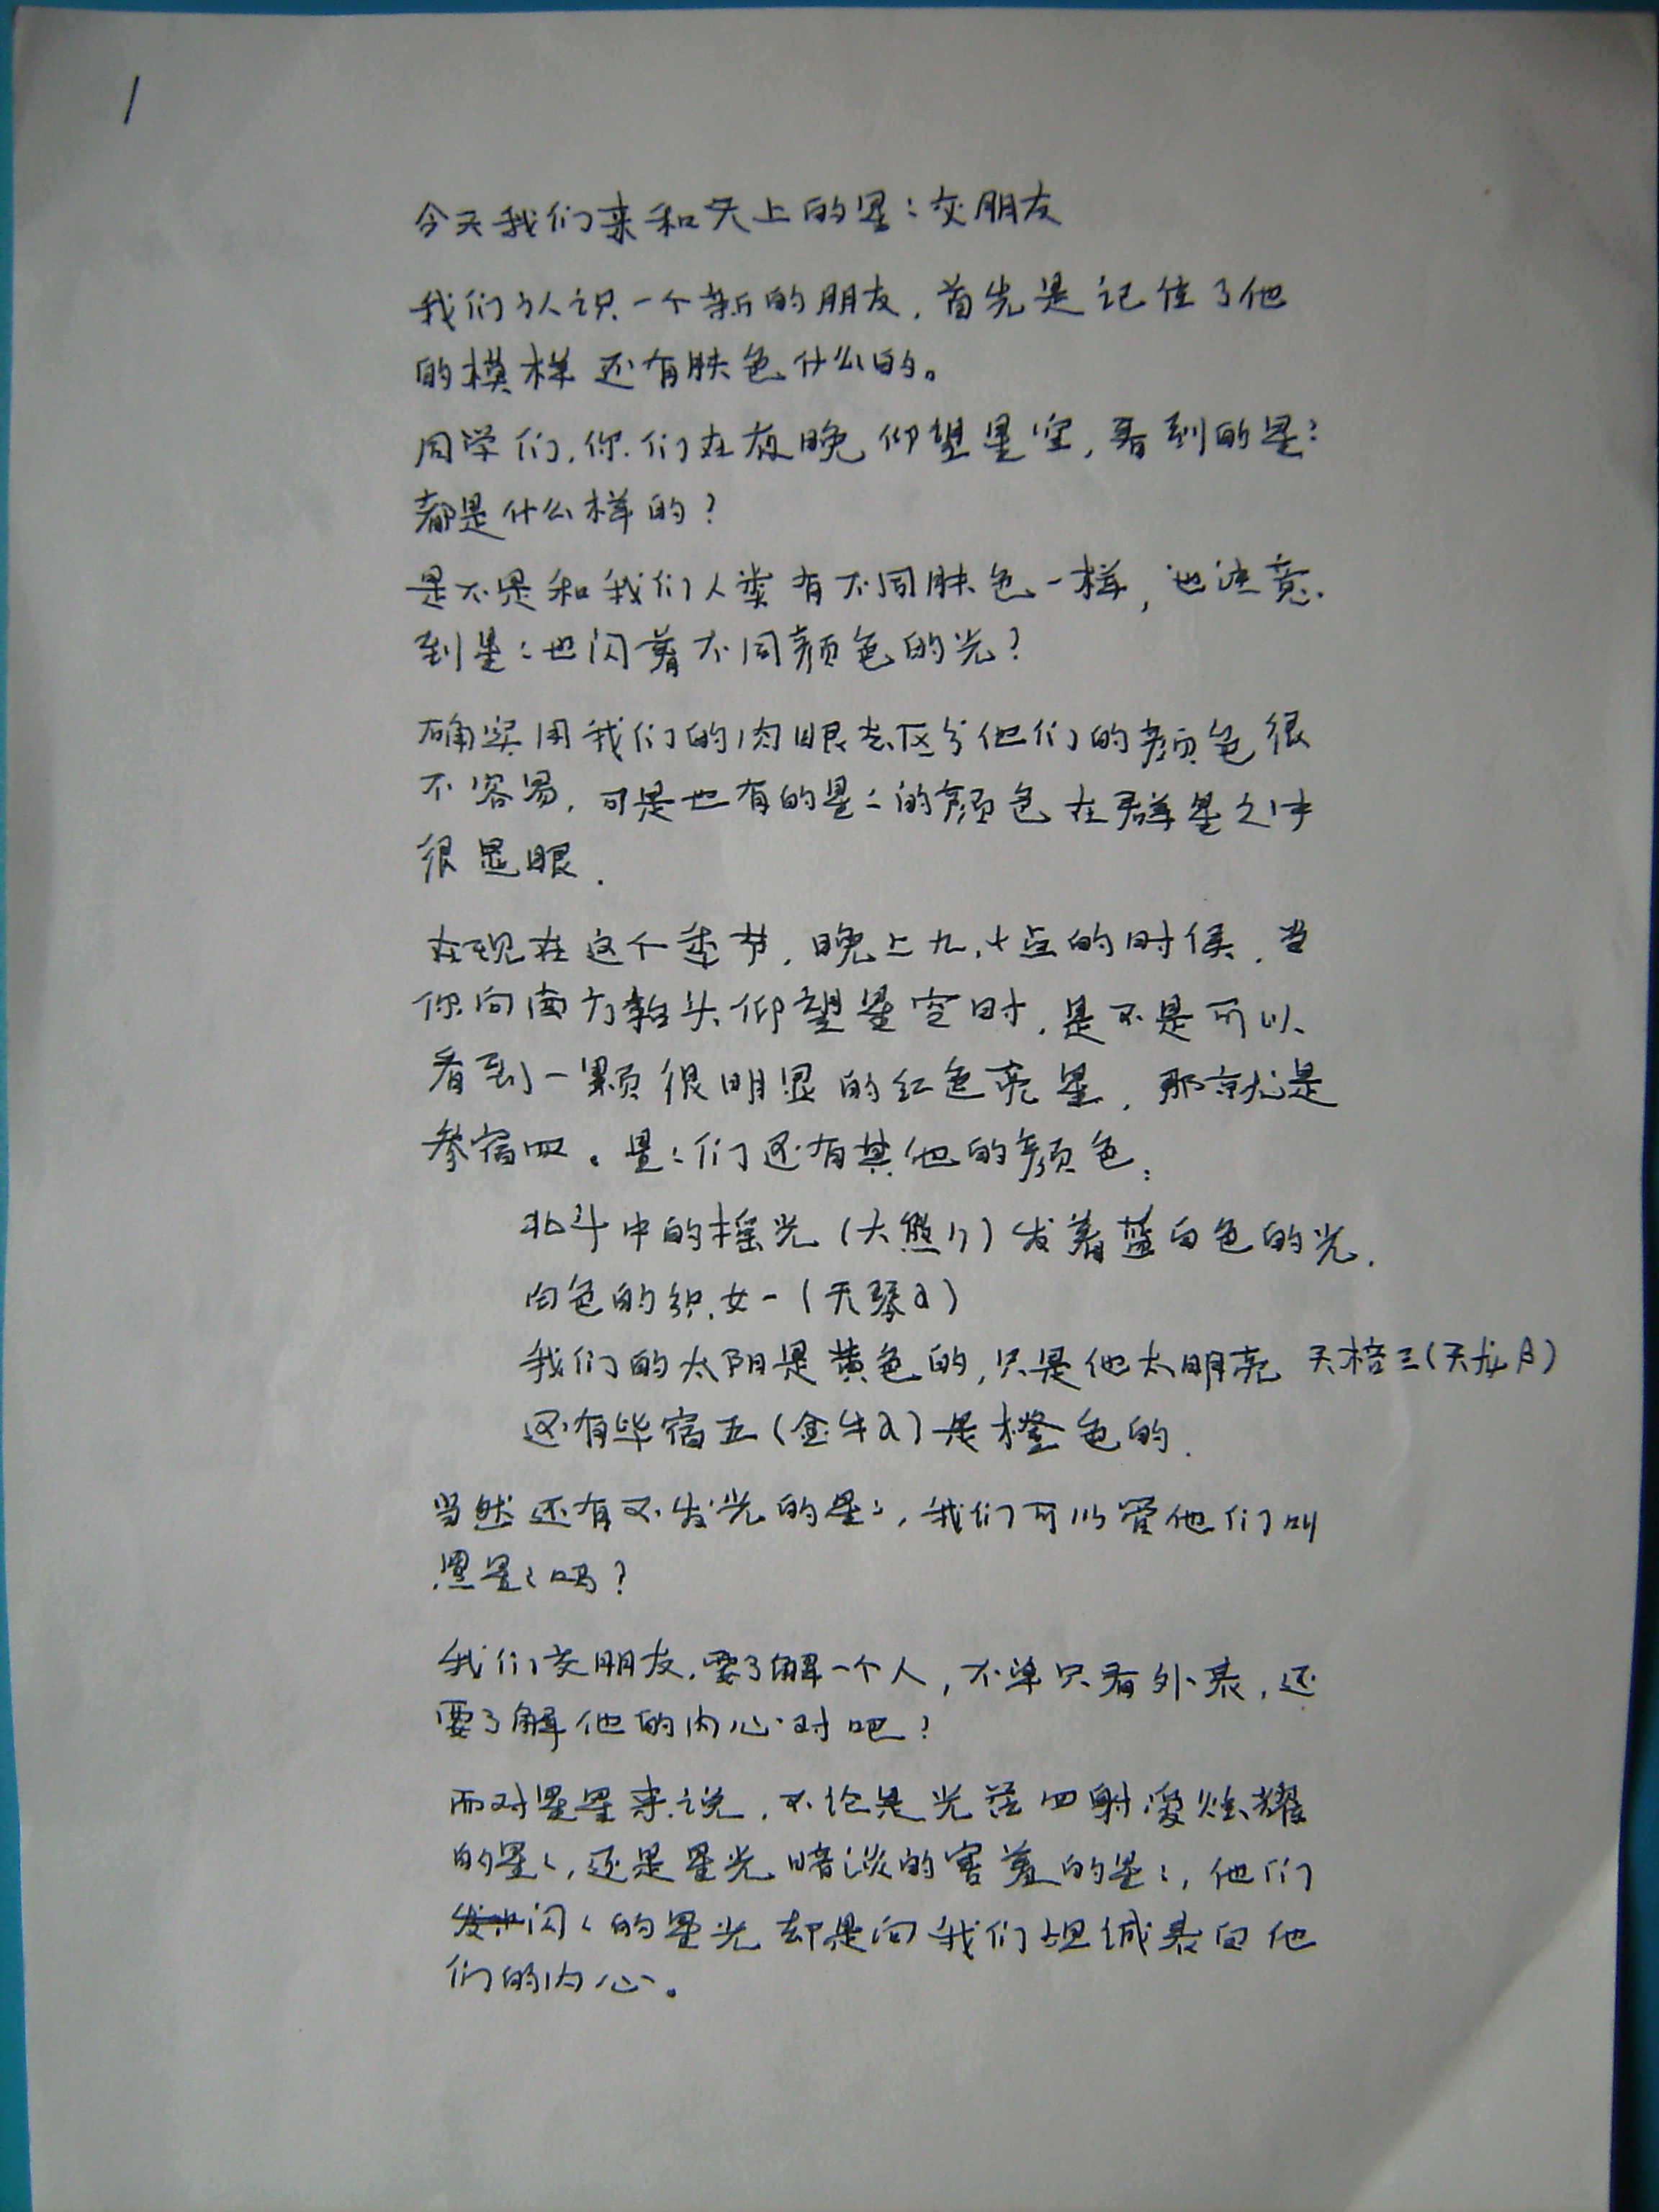 1
今天我们来和天上的星:交朋友
我们认识一个新的朋友,首先是记住了他
的模样还有肤色什么的。
同学们,你们在夜晚仰望星空,看到的星:
都是什么样的?
是不是和我们人类有不同肤色一样,也注意
到星:也闪着不同颜色的光?
确实用我们的肉眼去区分他们的颜色很
不容易,可是也有的星:的颜色在群星之中
很显眼.
在现在这个季节,晚上九,十点的时候,当
你向南方抬头仰望星空时,是不是可以
看到一颗很明显的红色亮星,那就是
参宿四。星:们还有其他的颜色:
北斗中的摇光(大熊η)发着蓝白色的光.
白色的织女一(天琴α)
我们的太阳是黄色的,只是他太明亮 天棓三(天龙β)
还有毕宿五(金牛α)是橙色的.
当然还有不发光的星:,我们可以管他们叫
黑星:吗?
我们交朋友,要了解一个人,不单只看外表,还
要了解他的内心对吧?
而对星星来说,不论是光芒四射爱炫耀
的星:,还是星光暗淡的害羞的星:,他们
闪:的星光却是向我们坦诚表白他
们的内心。